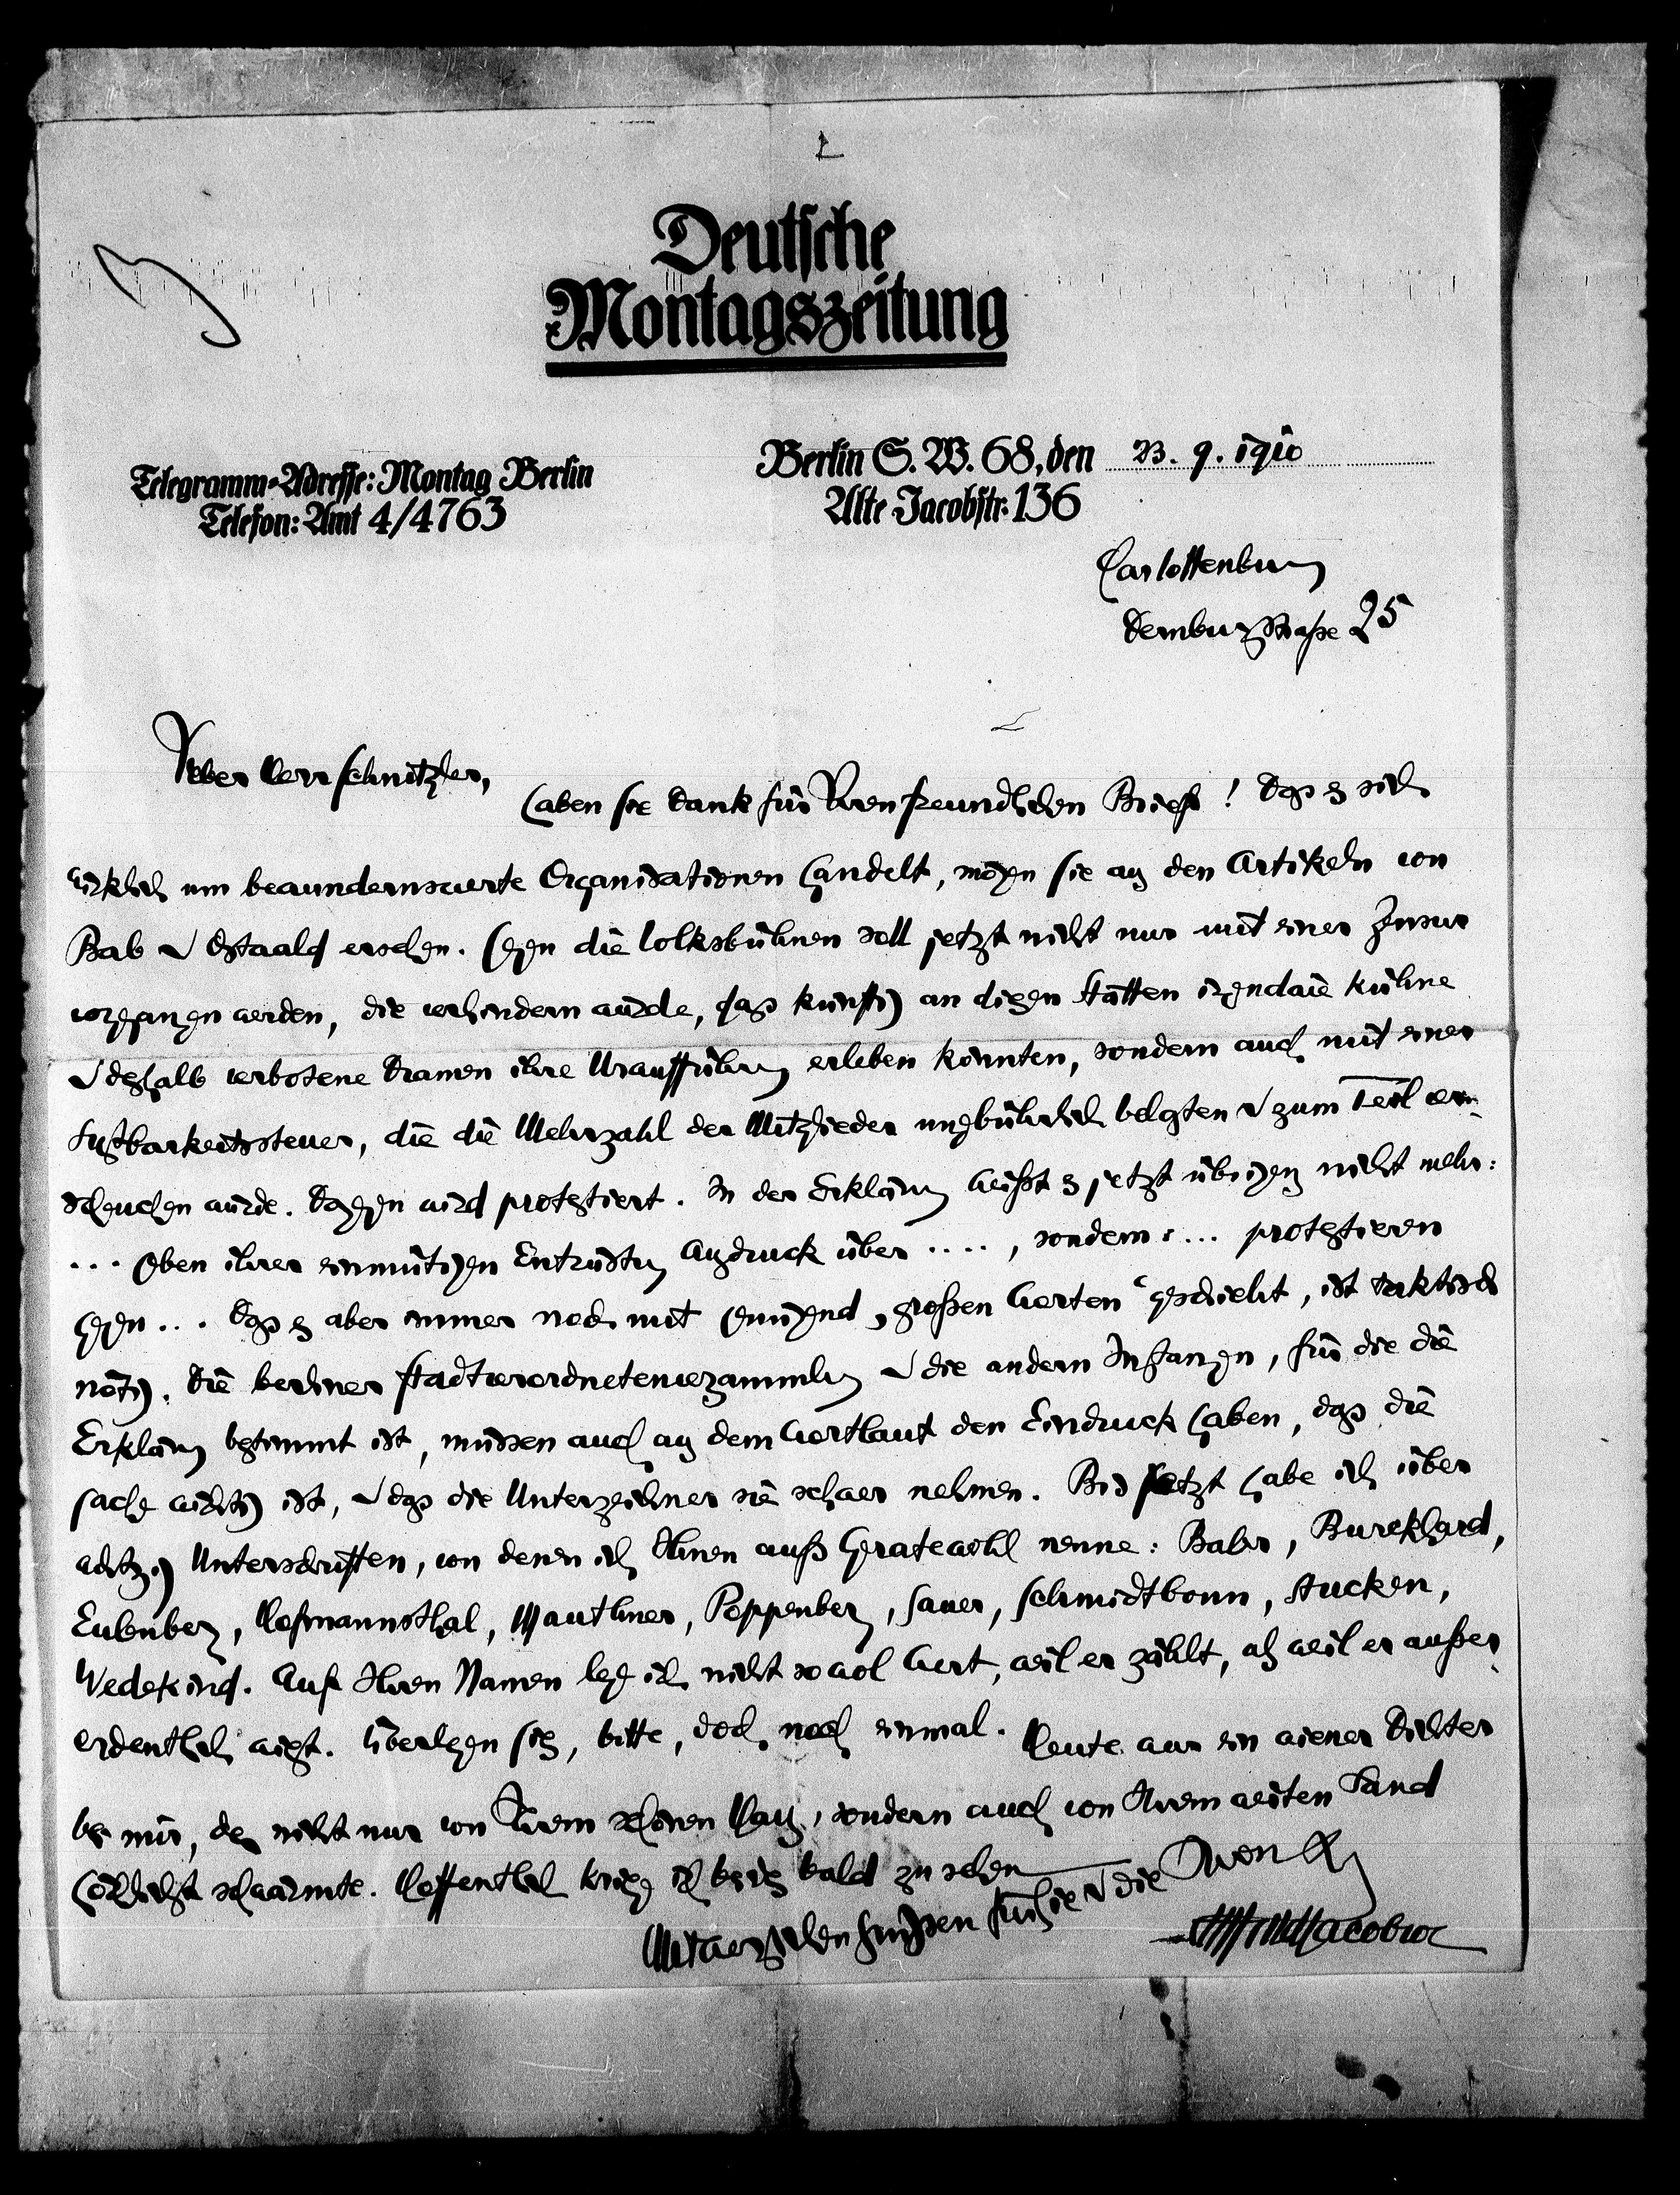 Deutsche
Montagszeitung
Telegramm-Adresse: Montag Berlin
Telefon: Amt 4/4763
Berlin S. W. 68, den 23. 9. 1910
Alte Jacobstr. 136
Carlottenburg
Dernburgstraße 25
Lieber Herr Schnitzler,
haben Sie Dank für Ihren freundlichen Brief! Daß es sich
wirklich um bewundernswerte Organisationen handelt, mögen Sie aus den Artikeln von
Bab u Ostwald ersehen. Gegen die Volksbühnen soll jetzt nicht nur mit einer Zensur
vorgegangen werden, die verhindern würde, daß künftig an diesen Stätten irgendwie kühne
u deshalb verbotene Dramen ihre Uraufführung erleben könnten, sondern auch mit einer
Lustbarkeitssteuer, die die Mehrzahl der Mitglieder ungebührlich belasten u zum Teil ver-
scheuchen würde. Dagegen wird protestiert. In der Erklärung heißt es jetzt übrigens nicht mehr:
... geben ihrer einmütigen Entrüstung Ausdruck über ...., sondern: ... protestieren
gegen ... Daß es aber immer noch mit genügend „großen Worten“ geschieht, ist taktisch
nötig. Die berliner Stadtverordnetenversammlung u die andern Instanzen, für die die
Erklärung bestimmt ist, müssen auch aus dem Wortlaut den Eindruck haben, daß die
Sache wichtig ist, u daß die Unterzeichner sie schwer nehmen. Bis jetzt habe ich über
achtzig Unterschriften, von denen ich Ihnen aufs Geratewohl nenne: Bahr, Burckhard,
Eulenberg, Hofmannsthal, Mauthner, Poppenberg, Sauer, Schmidtbonn, Stucken,
Wedekind. Auf Ihren Namen lege ich nicht sowol Wert, weil er zählt, als weil er außer-
ordentlich wiegt. Überlegen Sies, bitte, doch noch einmal. Heute war ein wiener Dichter
bei mir, der nicht nur von Ihrem schönen Haus, sondern auch von Ihrem weiten Land
herzlichst schwärmte. Hoffentlich kriege ich beides bald zu sehen
Mit herzlichen Grüßen für Sie u die Ihren
Ihr
Siegfried Jacobsohn